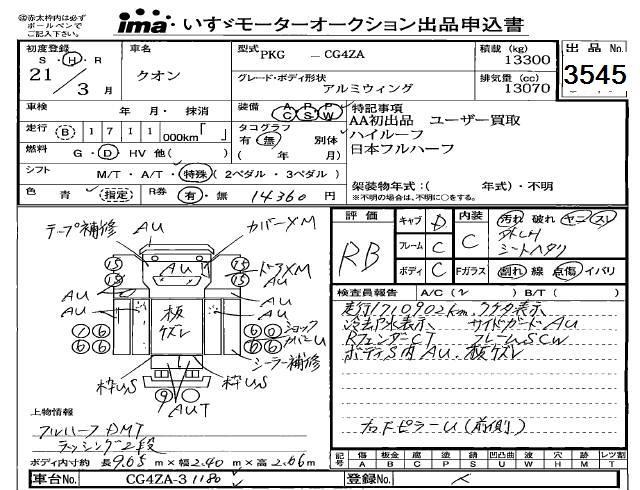 ㊟赤太枠内は必ず
ボールペンで
ご記入下さい。
ima いすゞモーターオークション出品申込書
初度登録 S・H・R 21 / 3 月
車名 クオン
型式 PKG － CG4ZA
積載 (kg) 13300
出品No. 3545
グレード・ボディ形状 アルミウィング
排気量 (cc) 13070
車検 年 月・ 抹消
装備 A C P S P W
特記事項
AA初出品 ユーザー買取
ハイルーフ
日本フルハーフ
走行 (B) 1 7 1 1 000km「 」
タコグラフ 有・無 別体 ( 年 月)
燃料 G・D・HV 他( )
シフト M/T・A/T・特殊(2ペダル・3ペダル)
色 青 (指定) R券 有・無 14360 円
架装物年式:( 年式)・不明
※不明の場合は、不明に○をする。
評価 RB
キャブ D 内装 C
フレーム C
ボディ C Fガラス
汚れ 破れ ヤニ スレ
シートヘタリ
割れ 線 点傷 イバリ
検査員報告 A/C( ) B/T( )
走行1710902km.
冷却水表示 サイドガードAU
RフェンダーCT フレームSCW
ボディS内AU. 板ズレ
フロドピラーU(前側)
テープ補修 AU カバーXM
15 AU 15
15 15 ドアXM
AU AU
AU 板ズレ AU
7 6 6 6 ショック
6 6 6 6 カバーU
シーラー補修
枠US 枠US
9
AUT
上物情報
フルハーフDMT
ラッシング2段
ボディ内寸約 長9.65 m×幅2.40 m×高2.66m
記号 傷 A 凹 B 腐 C 塗 P 錆 S 凹凸曲 U 波 W 穴 H 跡 M レツ割 T
車台No. CG4ZA-31180
登録No.